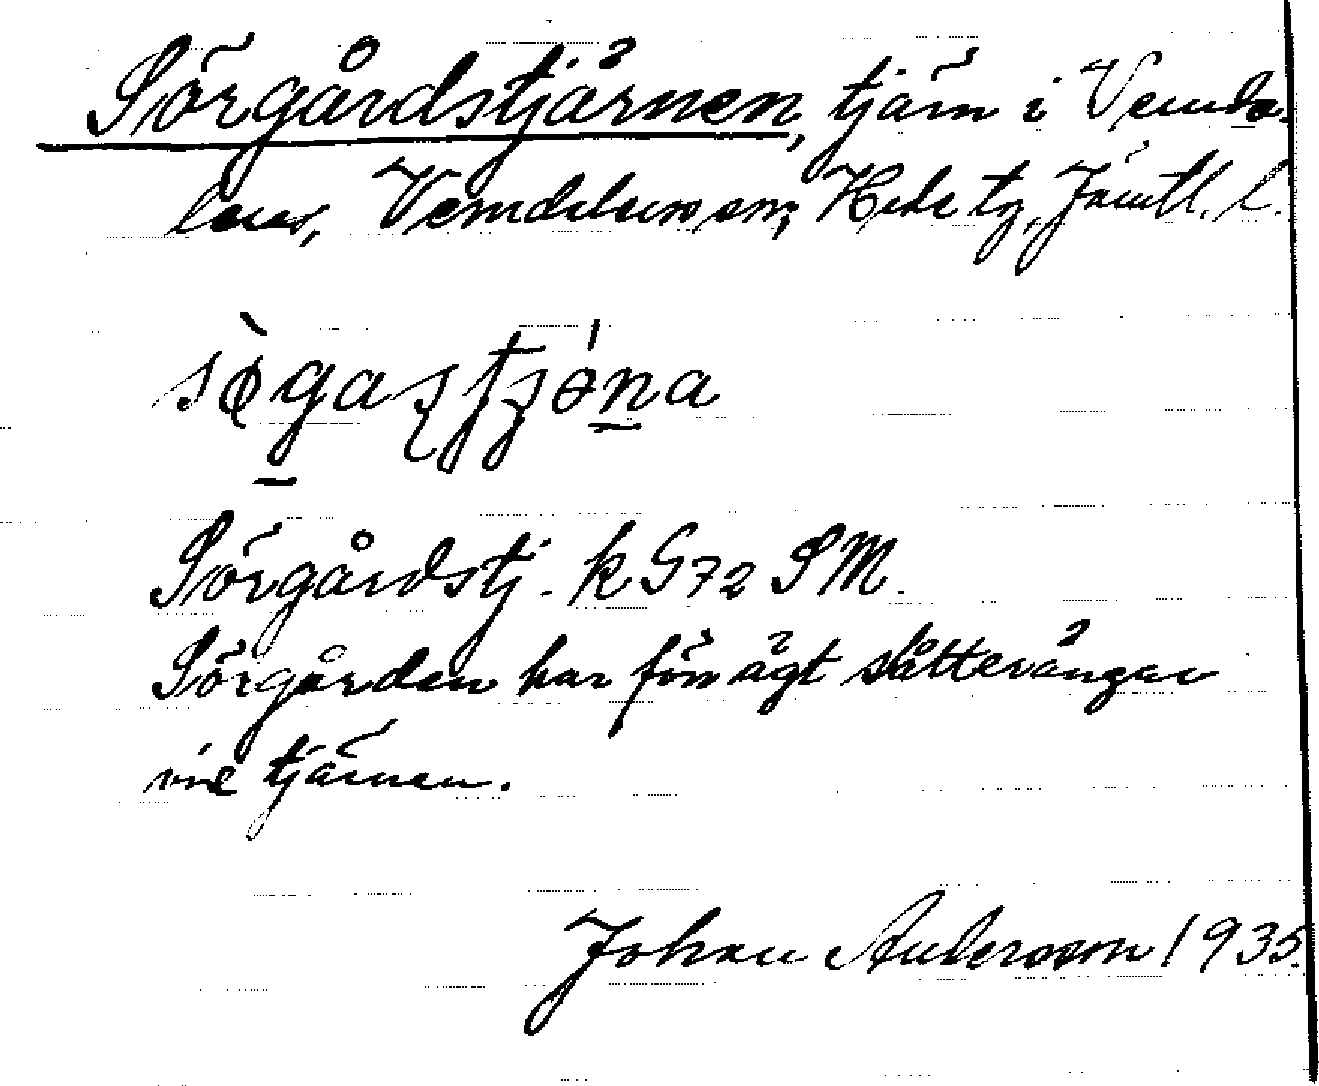 Sörgårdstjärnen, tjärn i Vemda-
lens, Vemdalens sn, Hede tg, Jämtl. l.
Sörgårdstj. k G72 SM.
Sörgården har förr ägt slåtterängar
vid tjärnen.
Johan Andersson 1935.